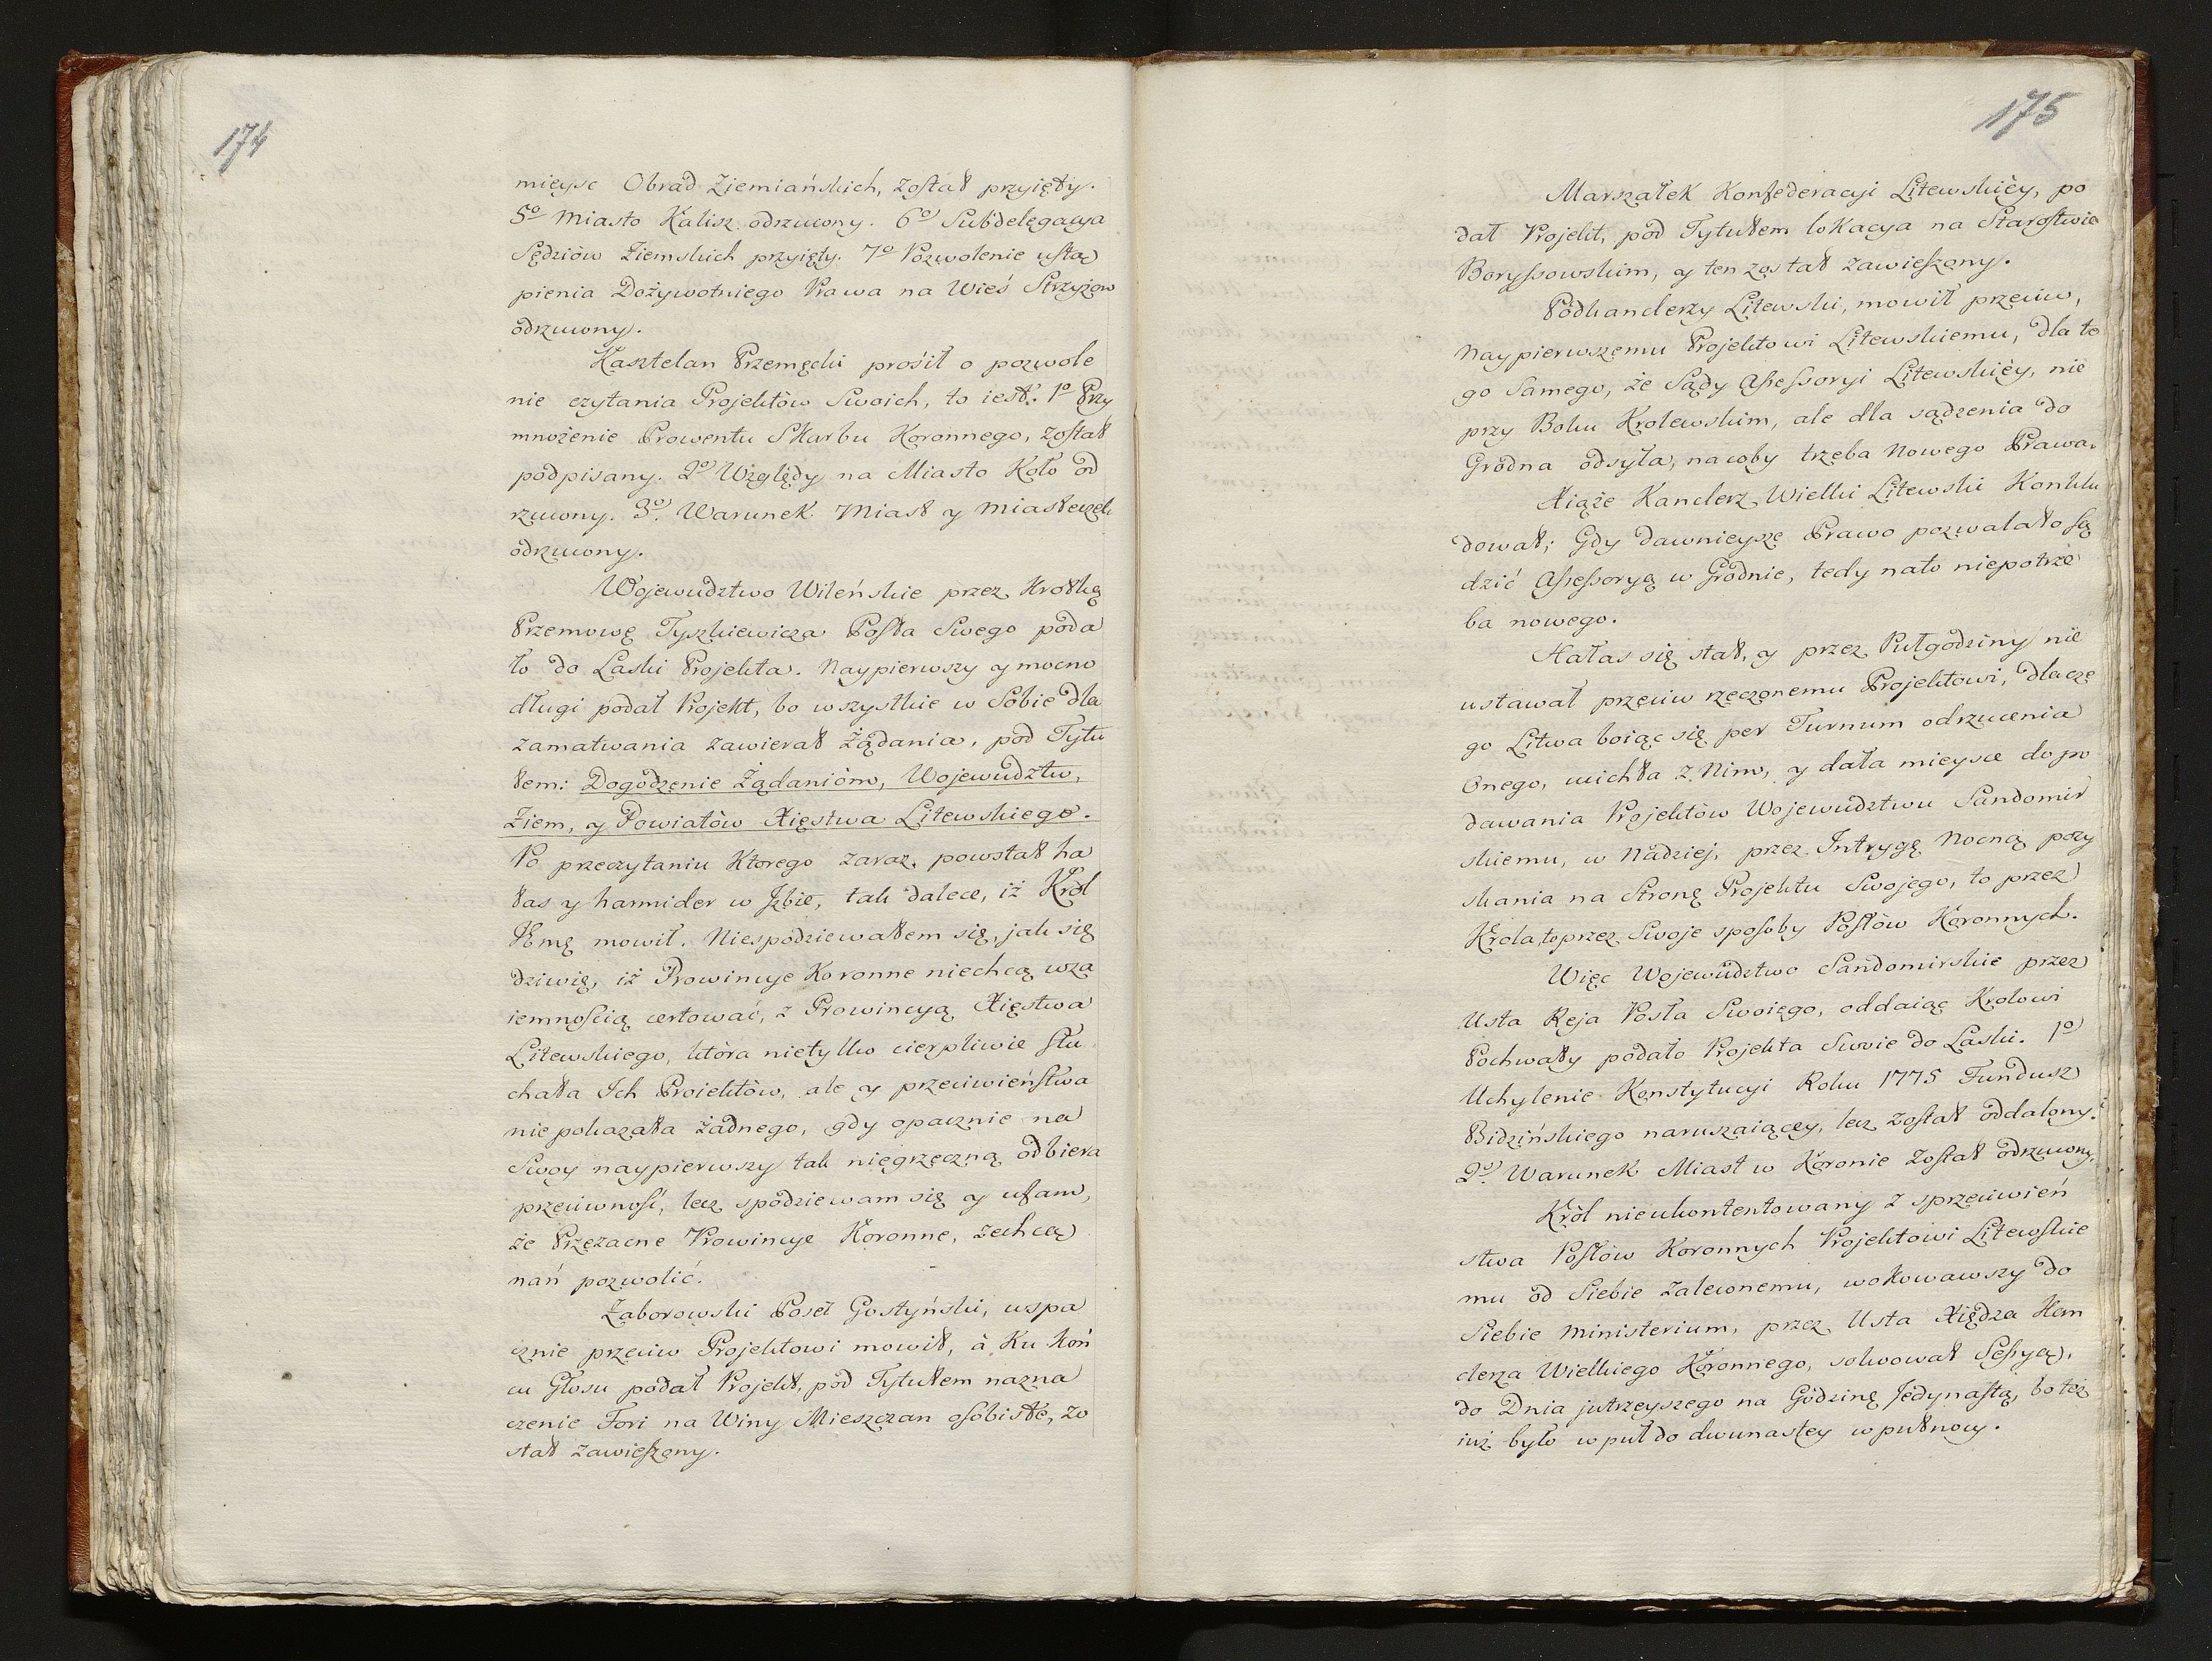 174
mieysc Obrad Ziemiańskich, został przyięty.
5o Miasto Kalisz odrzucony. 6o Subdelegacya
Sędziów Ziemskich przyięty. 7o Pozwolenie ustą
pienia Dożywotniego Prawa na Wieś Strzyżow
odrzucony.
Kasztelan Przemęcki prosił o pozwole
nie czytania Projektów Swoich, to iest: 1o Przy
mnożenie Prowentu Skarbu Koronnego, został
podpisany. 2o Względy na Miasto Koło od
rzucony. 3o Warunek Miast y Miasteczek
odrzucony.
Wojewudztwo Wileńskie przez Krotką
Przemowę Tyszkiewicza Posła Swego poda
ło do Laski Projekta. Naypierwszy y mocno
długi podał Projekt, bo wszystkie w Sobie dla
zamatwania zawierał Żądania, pod Tytu
łem: Dogodzenie Żądaniom, Wojewudztw,
Ziem, y Powiatów Xięstwa Litewskiego.
Po przeczytaniu Ktorego zaraz powstał ha
łas y harmider w Jzbie, tak dalece, iż Król
Jmę mowił. Niespodziewałem się, jak się
dziwię, iż Prowincye Koronne niechcą wza
iemnością certować, z Prowincyą Xięstwa
Litewskiego, która nietylko cierpliwie słu
chała Ich Proiektów, ale y przeciwieństwa
niepokazała żadnego, gdy opacznie na
Swoy naypierwszy tak niegrzeczną odbiera
przeciwność, lecz spodziewam się y ufam,
że Przezacne Prowincye Koronne, zechcą
nań pozwolić.
Zaborowski Poseł Gostyński, wspa
cznie przeciw Projektowi mowił, à Ku koń
cu Głosu podał Projekt, pod Tytułem nazna
czenie Fori na Winy Mieszczan osobiste, zo
stał zawieszony.
175
Marszałek Konfederacyi Litewskiéy, po
dał Projekt, pod Tytułem loKacya na Starostwie
Boryssowskim, y ten został zawieszony.
Podkanclerzy Litewski, mowił przeciw,
Naypierwszemu Projektowi Litewskiemu, dla te
go Samego, że Sądy Assessoryi Litewskiéy, nie
przy Boku Krolewskim, ale dla sądzenia do
Grodna odsyła, nacoby trzeba Nowego Prawa.
Xiąże Kanclerz Wielki Litewski Konklu
dował; Gdy dawnieysze Prawo pozwalało są
dzić Assessoryą w Grodnie, tedy nato niepotrze
ba nowego.
Hałas się stał, y przez Pułgodziny nie
ustawał przeciw rzeczonemu Projektowi, dlacze
go Litwa boiąc się per Turnum odrzucenia
Onego, ucichła z Nim, y dała mieysce do po
dawania Projektów Wojewudztwu Sandomir
skiemu, w Nadziej, przez Intrygę Nocną pozy
skania na Stronę Projektu Swojego, to przez
Krola, to przez Swoje sposoby Posłów Koronnych.
Więc Wojewudztwo Sandomirskie przez
Usta Reja Posła Swoiego, oddaiąc Krolowi
Pochwały podało Projekta Swoie do Laski. 1o
Uchylenie Konstytucyi Roku 1775 Fundusz
Bidzińskiego naruszaiącey, lecz został oddalony.
2o Warunek Miast w Koronie został odrzucony.
Król nieukontentowany z sprzeciwień
stwa Posłów Koronnych Projektowi Litewskie
mu od Siebie zaleconemu, wokowawszy do
Siebie Ministerium, przez Usta Xiędza Kan
clerza Wielkiego Koronnego, solwował Sessyą,
do Dnia jutrzeyszego na Godzinę Jedynastą, bo też
iuż było w puł do dwunastey w pułnocy.